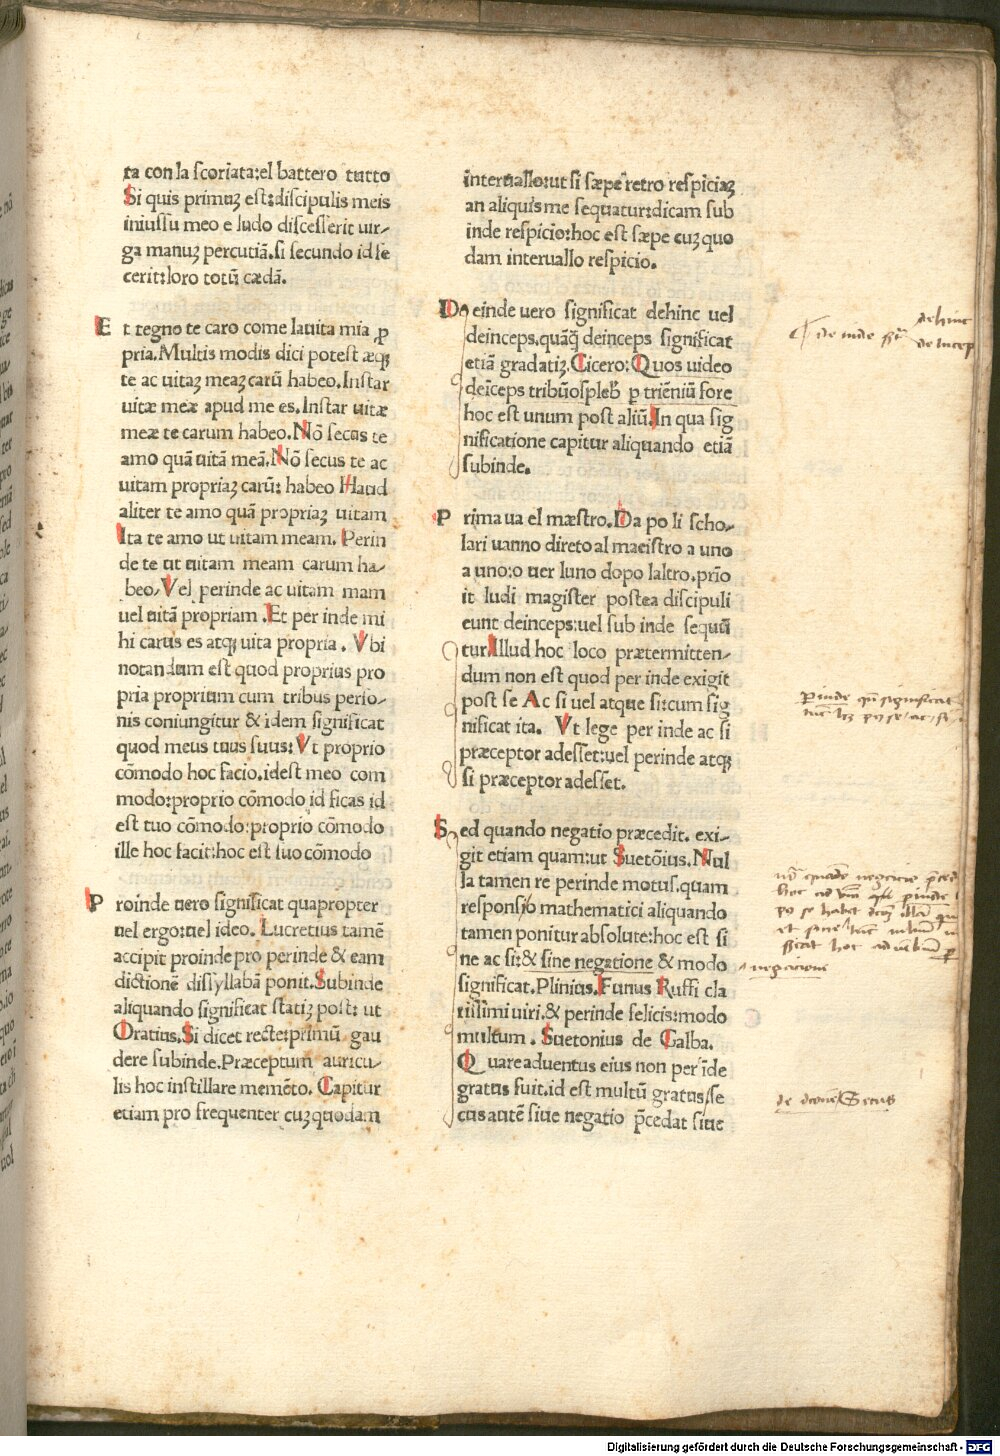 ta con la scoriata:el battero tutto
Si quis primuȝ est:discipulis meis
iniussu meo e ludo discesserit uir-
ga manuȝ percutiā.si secundo id fe
cerit:loro totū cædā.
Et tegno te caro come la uita mia ꝓ
pria.Multis modis dici potest æqꝫ
te ac uitaȝ meaȝ carū habeo.Instar
uitæ meæ apud me es.Instar uitæ
meæ te carum habeo.Nō secus te
amo quā uitā meā.Nō secus te ac
uitam propriaȝ carū: habeo Haud
aliter te amo quā propriaȝ uitam
Ita te amo ut uitam meam. Perin
de te ut uitam meam carum ha-
beo.Vel perinde ac uitam mam
uel uitā propriam .Et per inde mi
hi carus es atqꝫ uita propria . Vbi
notandum est quod proprius pro
pria proprium cum tribus perso-
nis coniungitur & idem significat
quod meus tuus suus: Vt proprio
cōmodo hoc facio.idest meo com
modo:proprio cōmodo id ficas id
est tuo cōmodo:proprio cōmodo
ille hoc facit:hoc est suo cōmodo
Proinde uero significat quapropter
uel ergo:uel ideo. Lucretius tamē
accipit proinde pro perinde & eam
dictionē dissyllabā ponit.Subinde
aliquando significat statiȝ post: ut
Oratius.Si dicet recte:primū gau
dere subinde.Præceptum auricu-
lis hoc instillare memēto. Capitur
etiam pro frequenter cuȝ quodam
interuallo:ut si sæpe retro respiciaȝ
an aliquis me sequatur:dicam sub
inde respicio:hoc est sæpe cuȝ quo
dam interuallo respicio.
Deinde uero significat dehinc uel
deinceps.quāqꝫ deinceps significat
etiā gradatiȝ.Cicero: Quos uideo
deīceps tribūos pleb ꝑ triēniū fore
hoc est unum post aliū.In qua sig
nificatione capitur aliquando etiā
subinde.
Prima ua el mæstro.Da po li scho-
lari uanno direto al maeistro a uno
a uno:o uer luno dopo laltro.prīo
it ludi magister postea discipuli
eunt deinceps:uel sub inde sequū
tur.Illud hoc loco prætermitten-
dum non est quod per inde exigit
post se Ac si uel atque si:cum sig
nificat ita. Vt lege per inde ac si
præceptor adesset:uel perinde atqꝫ
si præceptor adesset.
Sed quando negatio præcedit. exi-
git etiam quam:ut Suetōius. Nul
la tamen re perinde motus.quam
responsio mathematici aliquando
tamen ponitur absolute:hoc est si
ne ac si:& sine negatione & modo
significat.Plinius.Funus Ruffi cla
rissimi uiri.& perinde felicis:modo
multum . Suetonius de Galba.
Quare aduentus eius non per īde
gratus fuit.id est multū gratus/se
cus autē siue negatio p̄cedat siue
dehinc
deinde
deincep
negacione
Secus
Digitalisierung gefördert durch die Deutsche Forschungsgemeinschaft - DFG